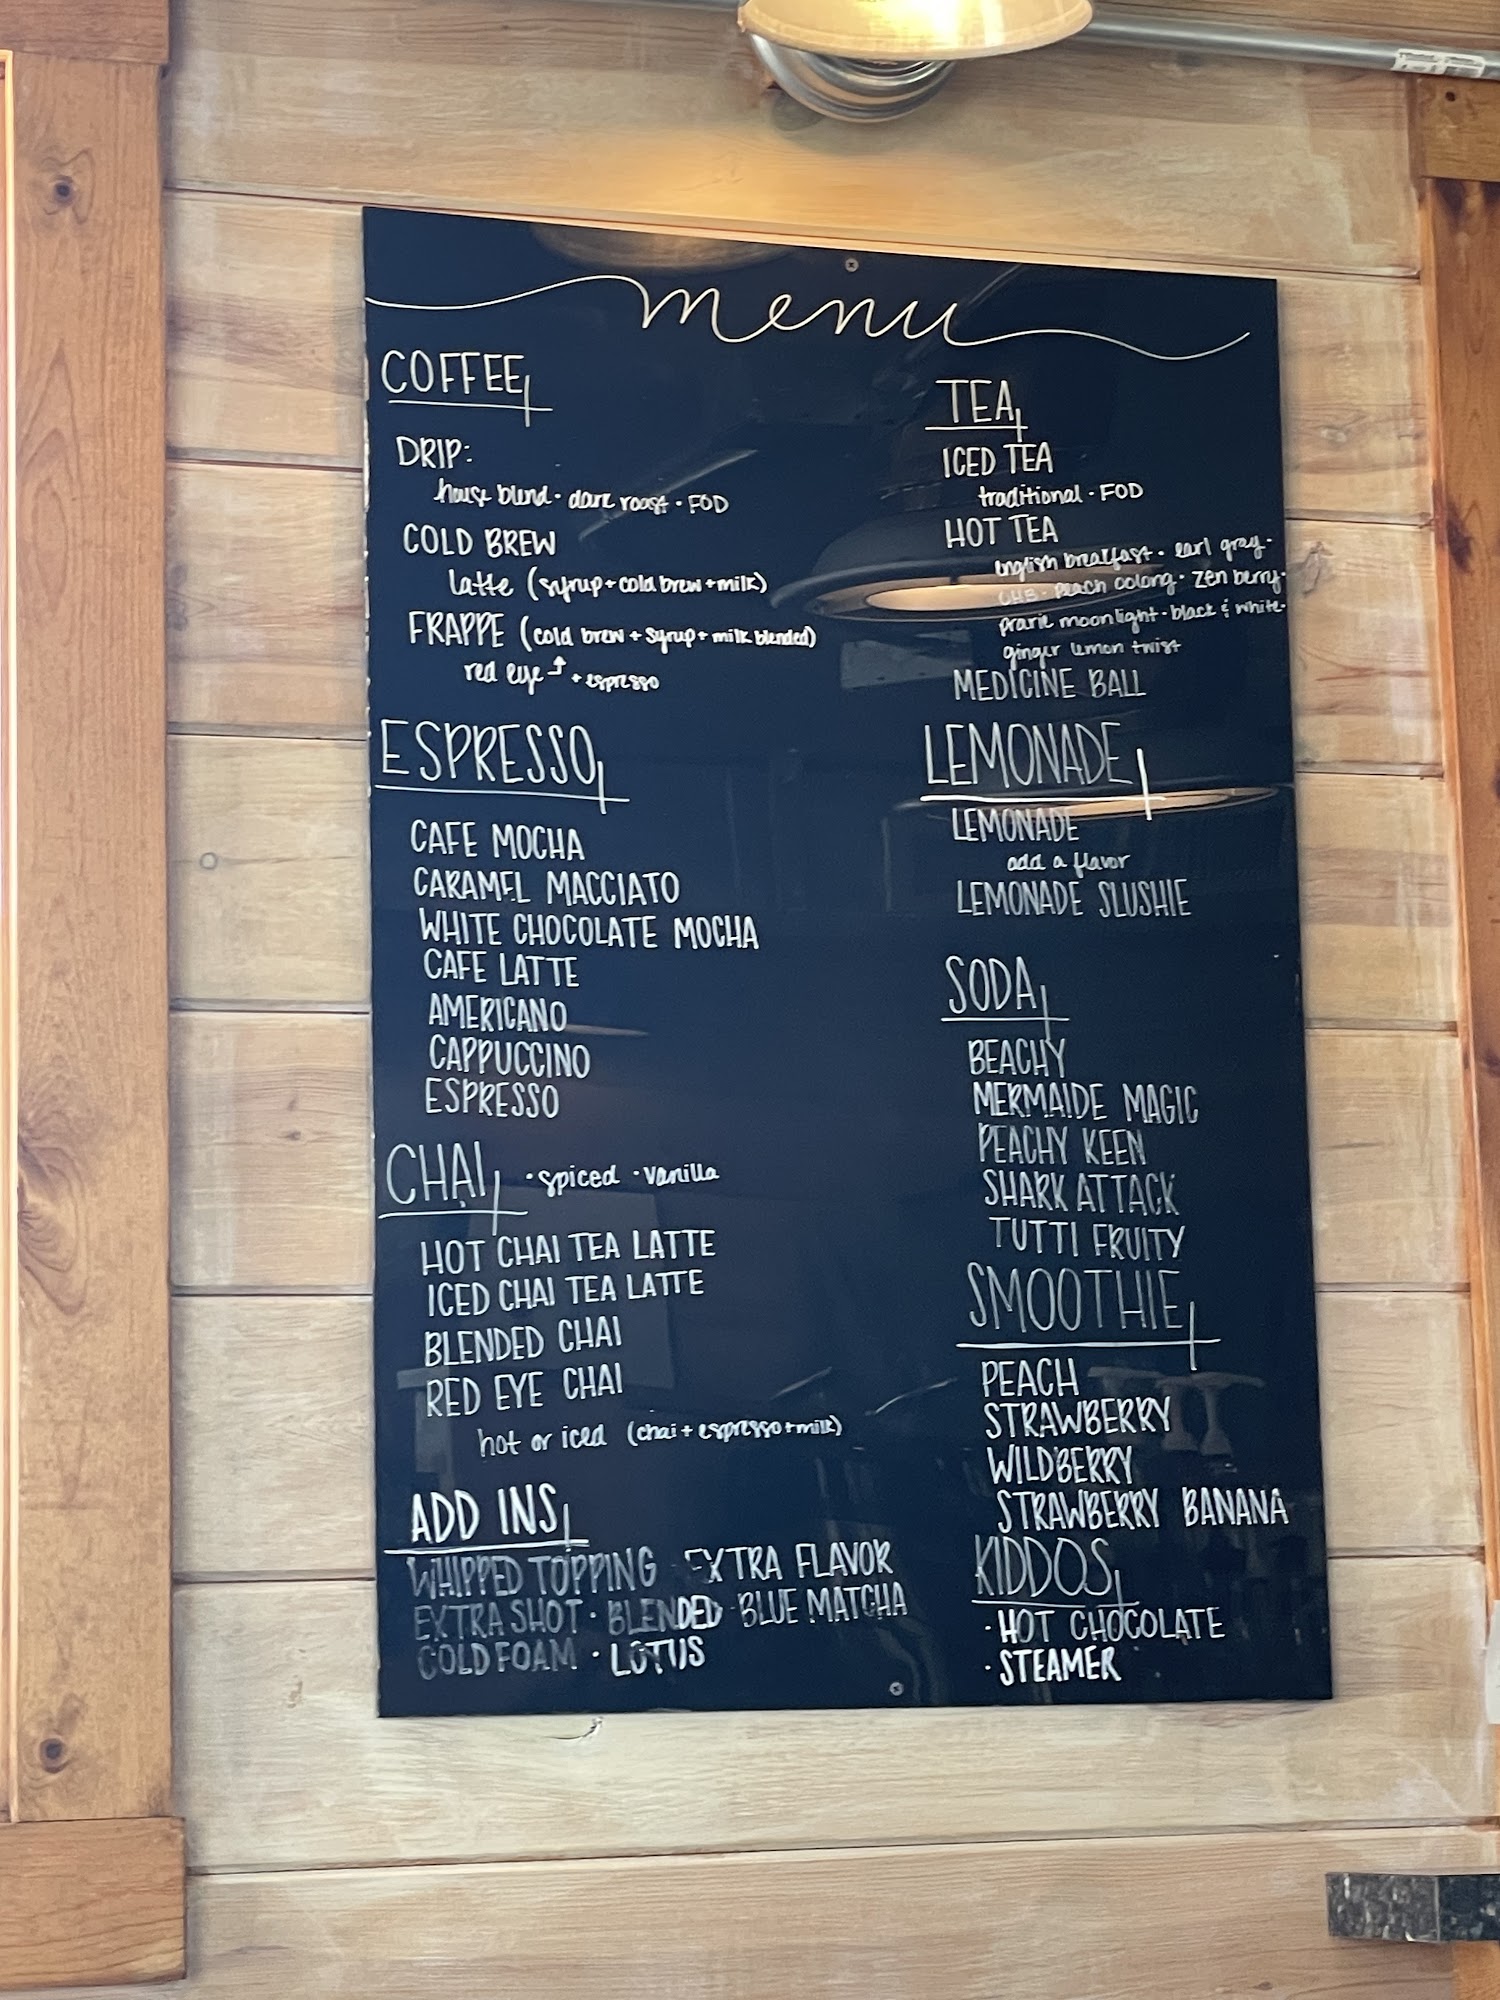 menu
COFFEE
DRIP:
house blend · dark roast · FOD
COLD BREW
latte (syrup + cold brew + milk)
FRAPPE (cold brew + syrup + milk blended)
red eye + espresso
ESPRESSO
CAFE MOCHA
CARAMEL MACCIATO
WHITE CHOCOLATE MOCHA
CAFE LATTE
AMERICANO
CAPPUCCINO
ESPRESSO
CHAI · spiced · vanilla
HOT CHAI TEA LATTE
ICED CHAI TEA LATTE
BLENDED CHAI
RED EYE CHAI
hot or iced (chai + espresso + milk)
ADD INS
WHIPPED TOPPING · EXTRA FLAVOR
EXTRA SHOT · BLENDED · BLUE MATCHA
COLD FOAM · LOTUS
TEA
ICED TEA
traditional · FOD
HOT TEA
english breakfast · earl gray ·
peach oolong · zen berry ·
prarie moonlight · black & white ·
ginger lemon twist
MEDICINE BALL
LEMONADE
LEMONADE
add a flavor
LEMONADE SLUSHIE
SODA
BEACHY
MERMAIDE MAGIC
PEACHY KEEN
SHARK ATTACK
TUTTI FRUITY
SMOOTHIE
PEACH
STRAWBERRY
WILDBERRY
STRAWBERRY BANANA
KIDDOS
· HOT CHOCOLATE
· STEAMER